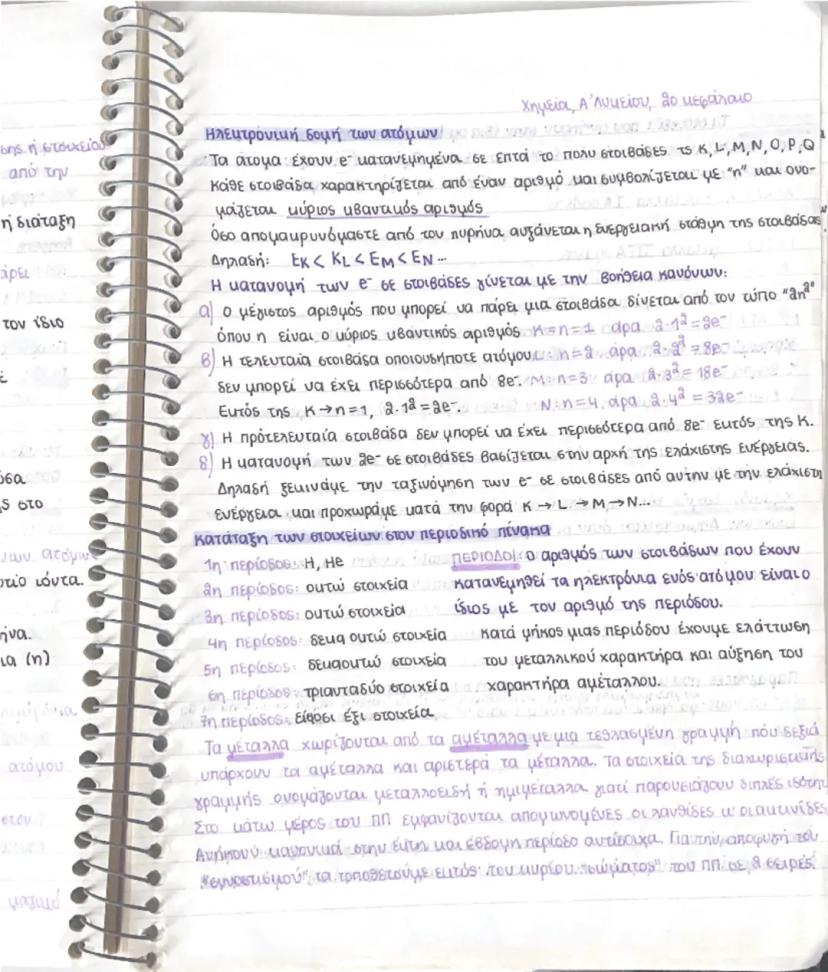 Χημεία, Α' Λυκείου, 2ο κεφάλαιο
Ηλεκτρονική δομή των ατόμων
Τα άτομα έχουν e⁻ κατανεμημένα σε επτά το πολύ στοιβάδες τς K, L, M, N, O, P, Q
σης ή στοιχείου
από την
Κάθε στοιβάδα χαρακτηρίζεται από έναν αριθμό και συμβολίζεται με "n" και ονο-
μάζεται κύριος κβαντικός αριθμός
ή διάταξη
Όσο απομακρυνόμαστε από τον πυρήνα αυξάνεται η ενεργειακή στάθμη της στοιβάδας
Δηλαδή: EK < KL < EM < EN ...
άρει
Η κατανομή των e⁻ σε στοιβάδες γίνεται με την βοήθεια κανόνων:
α) Ο μέγιστος αριθμός που μπορεί να πάρει μια στοιβάδα δίνεται από τον τύπο "2n²"
τον ίδιο
όπου n είναι ο κύριος κβαντικός αριθμός K=n=1 άρα 2·1²=2e⁻
β) Η τελευταία στοιβάδα οποιουδήποτε ατόμου L=n=2 άρα 2·2²=8e⁻
δεν μπορεί να έχει περισσότερα από 8e⁻. M=n=3 άρα 2·3²=18e⁻
Εκτός της K→n=1, 2·1²=2e⁻. N=n=4 άρα 2·4²=32e⁻
γ) Η πρότελευταία στοιβάδα δεν μπορεί να έχει περισσότερα από 8e⁻ εκτός της K.
δ) Η κατανομή των 2e⁻ σε στοιβάδες βασίζεται στην αρχή της ελάχιστης ενέργειας.
Δηλαδή ξεκινάμε την ταξινόμηση των e⁻ σε στοιβάδες από αυτην με την ελάχιστη
ς στο
ενέργεια και προχωράμε κατά την φορά K → L → M → N...
Κατάταξη των στοιχείων στον περιοδικό πίνακα
1η περίοδος: H, He
2η περίοδος: οκτώ στοιχεία
3η περίοδος: οκτώ στοιχεία
4η περίοδος: δεκα οκτώ στοιχεία
5η περίοδος: δεκαοκτώ στοιχεία
6η περίοδος: τριανταδύο στοιχεία
7η περίοδος: είκοσι έξι στοιχεία
ΠΕΡΙΟΔΟΙ: ο αριθμός των στοιβάδων που έχουν
κατανεμηθεί τα ηλεκτρόνια ενός ατόμου είναι ο
ίδιος με τον αριθμό της περιόδου.
Κατά μήκος μιας περιόδου έχουμε ελάττωση
του μεταλλικού χαρακτήρα και αύξηση του
χαρακτήρα αμέταλλου.
ια (n)
Τα μέταλλα χωρίζονται από τα αμέταλλα με μια τεθλασμένη γραμμή που δεξιά
υπάρχουν τα αμέταλλα και αριστερά τα μέταλλα. Τα στοιχεία της διαχωριστικής
ατόμου
γραμμής ονομάζονται μεταλλοειδή ή ημιμέταλλα γιατί παρουσιάζουν διπλές ιδιότητ
Στο κάτω μέρος του ΠΠ εμφανίζονται απομονωμένες οι λανθίδες κ' οι ακτινίδες.
Ανήκουν κανονικά στην έκτη και έβδομη περίοδο αντίστοιχα. Για την αποφυγή του
"συνωστισμού" τα τοποθετούμε εκτός του κυρίου "σώματος" του ΠΠ σε 2 σειρές.